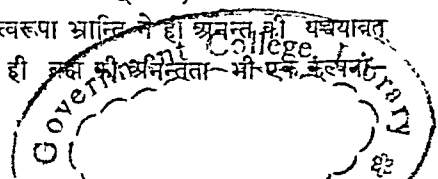 त्वरूपा भ्रान्ति ने ही अनन्त की यच्चयावत्
ही ब्रह्म की अनन्तता भी एक कल्पना
Government College Library